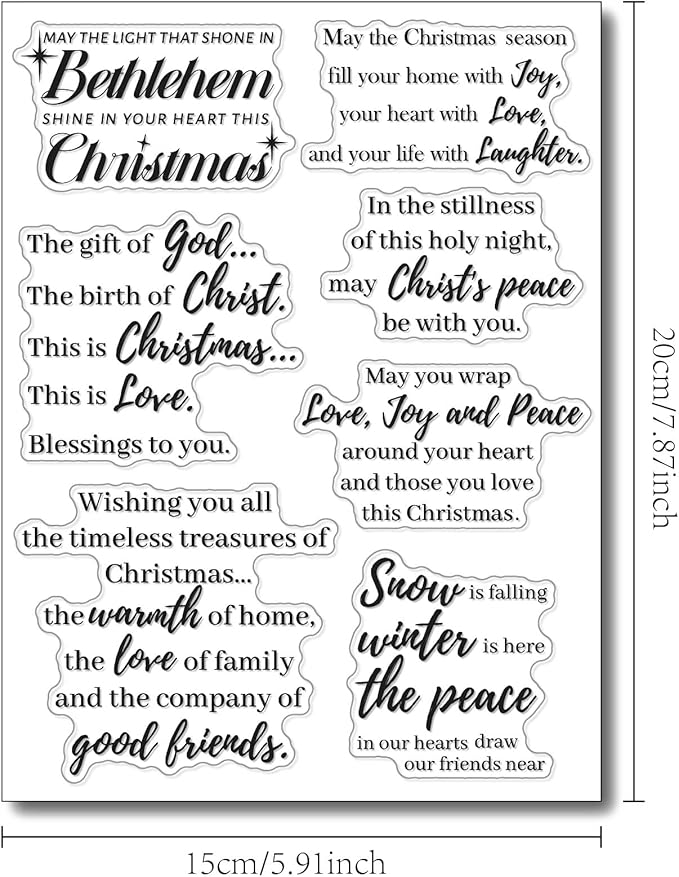 MAY THE LIGHT THAT SHONE IN
Bethlehem
SHINE IN YOUR HEART THIS
Christmas
May the Christmas season
fill your home with Joy,
your heart with Love,
and your life with Laughter.
The gift of God...
The birth of Christ.
This is Christmas...
This is Love.
Blessings to you.
In the stillness
of this holy night,
may Christ's peace
be with you.
May you wrap
Love, Joy and Peace
around your heart
and those you love
this Christmas.
Wishing you all
the timeless treasures of
Christmas...
the warmth of home,
the love of family
and the company of
good friends.
Snow is falling
winter is here
the peace
in our hearts draw
our friends near
20cm/7.87inch
15cm/5.91inch